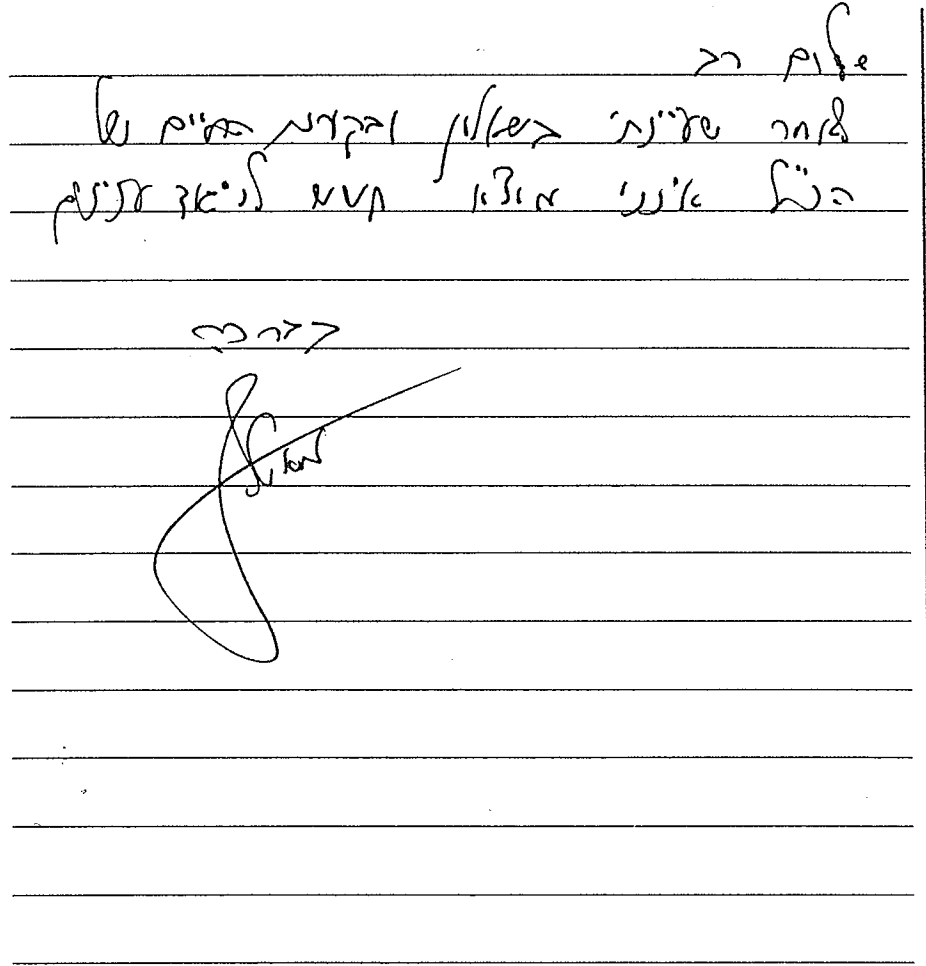 שלום רב
לאחר שעיינתי בשאלון ובקורות החיים של
הנ"ל אינני מוצא חשש לניגוד עניינים
בברכה